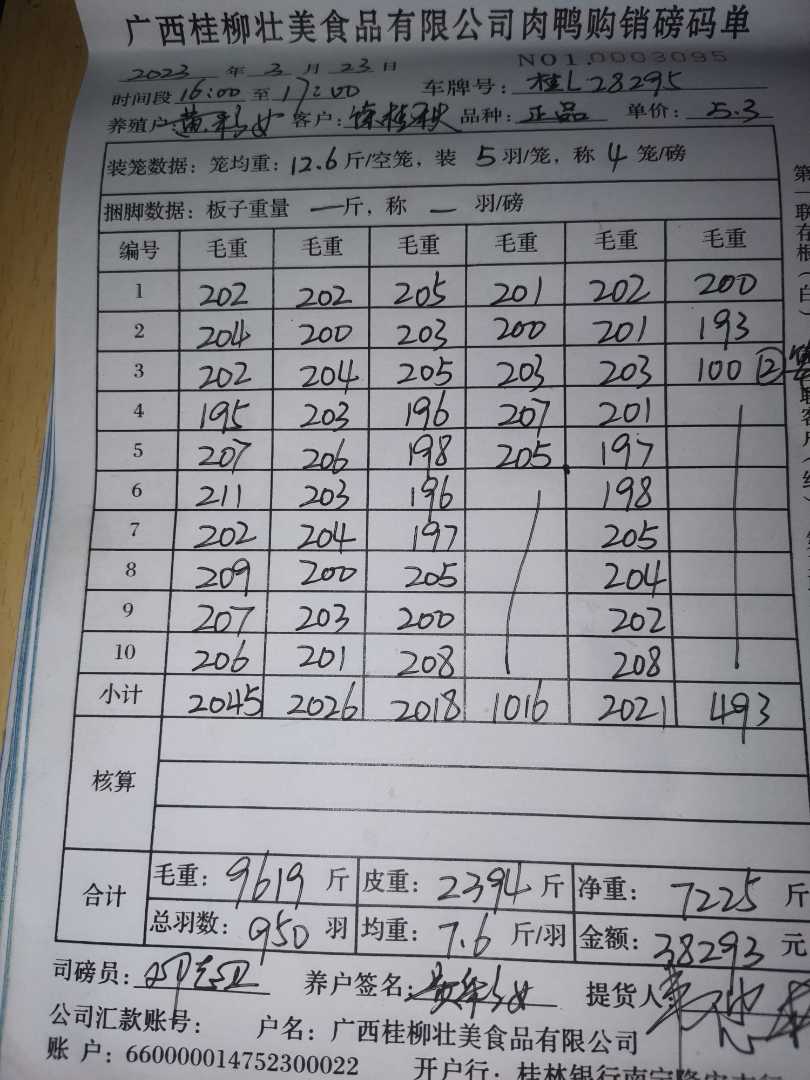 广西桂柳壮美食品有限公司肉鸭购销磅码单
NO1.0003095
2023 年 3 月 23 日
时间段 16:00 至 17:00 车牌号: 桂L28295
养殖户: 黄彩女 客户: 徐桂秋 品种: 正品 单价: 5.3
装笼数据: 笼均重: 12.6 斤/空笼, 装 5 羽/笼, 称 4 笼/磅
捆脚数据: 板子重量 — 斤, 称 — 羽/磅
编号 毛重 毛重 毛重 毛重 毛重 毛重
1 202 202 205 201 202 200
2 204 200 203 200 201 193
3 202 204 205 203 203 100 ②
4 195 203 196 207 201
5 207 206 198 205 197
6 211 203 196 198
7 202 204 197 205
8 209 200 205 204
9 207 203 200 202
10 206 201 208 208
小计 2045 2026 2018 1016 2021 493
核算
合计 毛重: 9619 斤 皮重: 2394 斤 净重: 7225 斤
总羽数: 950 羽 均重: 7.6 斤/羽 金额: 38293 元
司磅员: 养户签名: 黄彩女 提货人
公司汇款账号: 户名: 广西桂柳壮美食品有限公司
账 户: 660000014752300022 开户行: 桂林银行南宁隆安支行